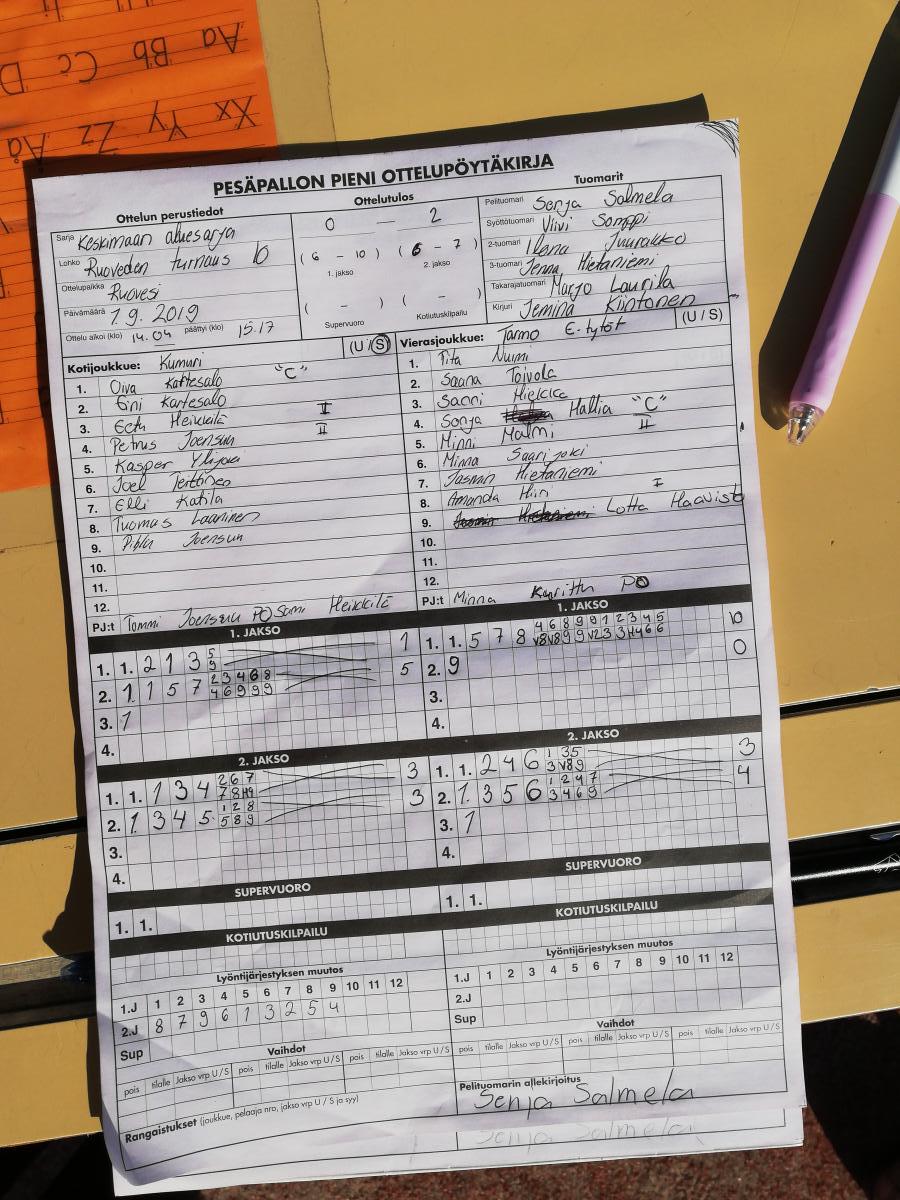 Aa Bb Cc D
Xx Yy Zz Åå
PESÄPALLON PIENI OTTELUPÖYTÄKIRJA
Ottelun perustiedot
Sarja Keskimaan aluesarja
Lohko Ruoveden turnaus 10
Ottelupaikka Ruovesi
Päivämäärä 1.9.2019
Ottelu alkoi (klo) 14.04 päättyi (klo) 15.17
Ottelutulos
0 — 2
( 6 – 10 ) ( 6 – 7 )
1. jakso 2. jakso
( – ) ( – )
Supervuoro Kotiutuskilpailu
Tuomarit
Pelituomari Senja Salmela
Syöttötuomari Viivi Somppi
2-tuomari Ilona Juurakko
3-tuomari Jenna Hietaniemi
Takarajatuomari Marjo Laurila
Kirjuri Jemina Kiintonen
Kotijoukkue: Kumuri (U / S)
1. Oiva Kattesalo "C"
2. Gini Kartesalo
3. Eeth Heikkilä I
4. Petrus Joensuu II
5. Kasper Ylijoki
6. Joel Terttinen
7. Elli Katila
8. Tuomas Laaninen
9. Pihla Joensuu
10.
11.
12.
PJ:t Tommi Joensuu PO Sami Heikkilä
Vierasjoukkue: Tarmo E-tytöt (U / S)
1. Tita Nuimi
2. Saana Toivola
3. Sanni Hiekka
4. Sonja Hallia "C"
5. Minni Malmi II
6. Minna Saarijoki
7. Jasmin Hietaniemi
8. Amanda Hiiri I
9. Lotta Haavisto
10.
11.
12.
PJ:t Minna Kurittu PO
1. JAKSO
1. 1. 2 1 3 5 1
9
2. 1. 1 5 7 2 3 4 6 8 5
4 6 9 9 9
3. 1
4.
1. JAKSO
1. 1. 5 7 8 4 6 8 9 9 1 2 3 4 5 10
V8 V8 9 9 V2 3 3 H4 6 6
2. 9 0
3.
4.
2. JAKSO
1. 1. 1 3 4 2 6 7 3
7 8 H9
2. 1. 3 4 5 1 2 8 3
5 8 9
3.
4.
2. JAKSO
1. 1. 2 4 6 1 3 5 3
3 V8 9
2. 1. 3 5 6 1 2 4 7 4
3 4 6 9
3. 1
4.
SUPERVUORO
1. 1.
SUPERVUORO
1. 1.
KOTIUTUSKILPAILU
KOTIUTUSKILPAILU
Lyöntijärjestyksen muutos
1.J 1 2 3 4 5 6 7 8 9 10 11 12
2.J 8 7 9 6 1 3 2 5 4
Sup
Lyöntijärjestyksen muutos
1.J 1 2 3 4 5 6 7 8 9 10 11 12
2.J
Sup
Vaihdot
pois tilalle Jakso vrp U / S pois tilalle Jakso vrp U / S pois tilalle Jakso vrp U / S
Vaihdot
pois tilalle Jakso vrp U / S pois tilalle Jakso vrp U / S pois tilalle Jakso vrp U / S
Rangaistukset (joukkue, pelaaja nro, jakso vrp U / S ja syy)
Pelituomarin allekirjoitus
Senja Salmela
Senja Salmela